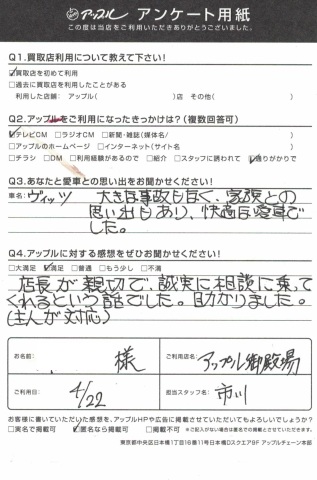 アップル アンケート用紙
この度は当店をご利用いただきありがとうございました。
Q1.買取店利用について教えて下さい!
☑買取を初めて利用
□過去に買取を利用したことがある
利用した店舗: アップル( )店 その他( )
Q2.アップルをご利用になったきっかけは?(複数回答可)
☑テレビCM □ラジオCM □新聞・雑誌(媒体名/ )
□アップルのホームページ □インターネット(サイト名 )
□チラシ □DM □利用経験があるので □紹介 □スタッフに誘われて ☑通りがかりで
Q3.あなたと愛車との思い出をお聞かせください!
車名: ヴィッツ 大きな事故も無く、家族との
思い出もあり、快適な愛車で
した。
Q4.アップルに対する感想をぜひお聞かせください!
□大満足 ☑満足 □普通 □もう少し □不満
店長が親切で、誠実に相談に乗って
くれるという話でした。助かりました。
(主人が対応)
お名前: 様 ご利用店名: アップル御殿場
ご利用日: 4/22 担当スタッフ名: 市川
お客様に書いていただいた感想を、アップルHPや広告に掲載させていただいてもよろしいでしょうか?
□実名で掲載可 ☑匿名なら掲載可 □掲載不可 ※ご記入がない場合は匿名での掲載とさせていただきます。
東京都中央区日本橋1丁目16番11号日本橋Dスクエア9F アップルチェーン本部